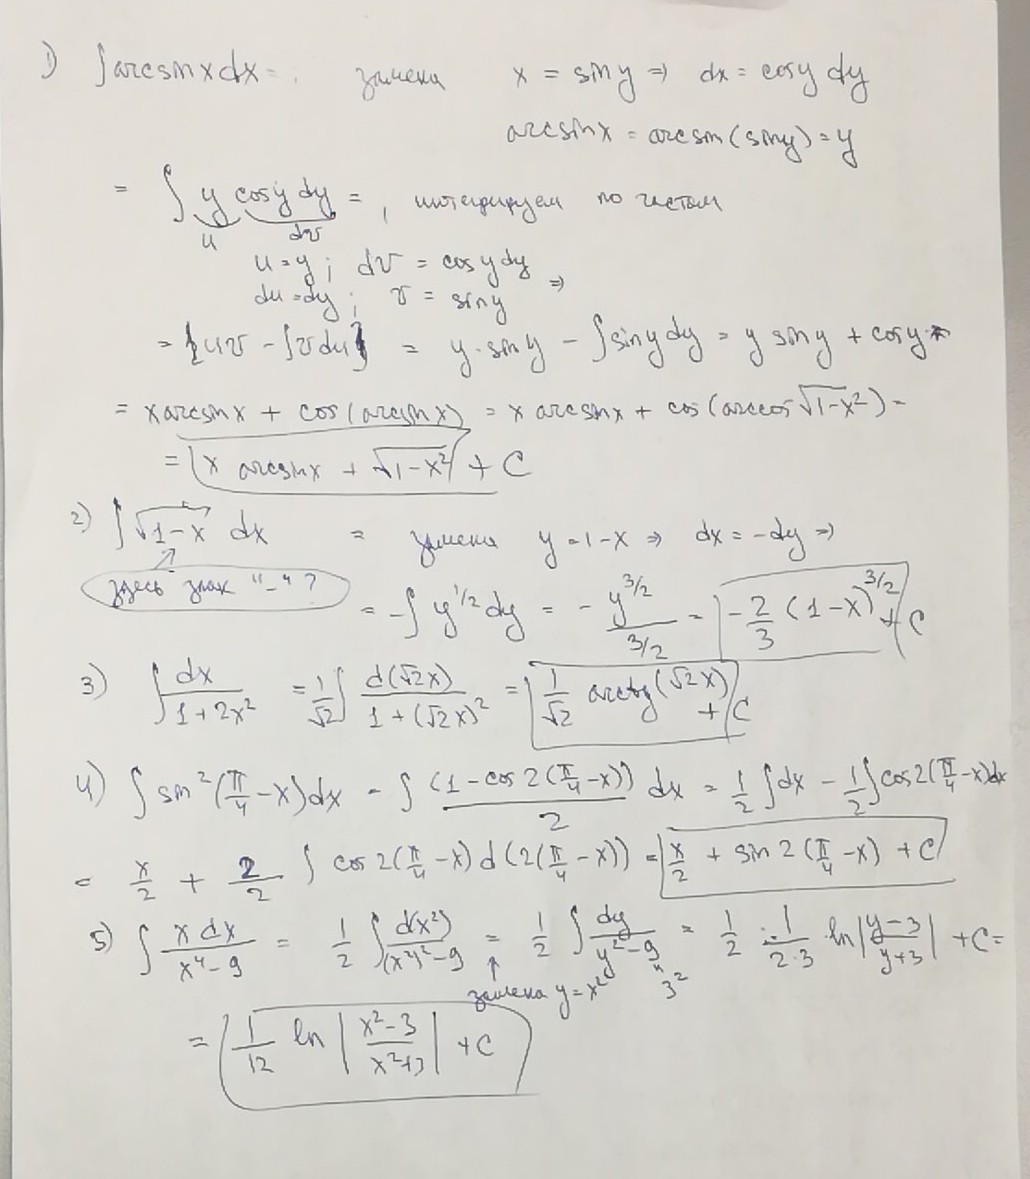 1) ∫arcsin x dx = ; замена x = sin y ⇒ dx = cos y dy
arcsin x = arcsin(sin y) = y
= ∫ y cos y dy = , интегрируем по частям
u dv
u = y ; dv = cos y dy
du = dy ; v = sin y ⇒
= {uv - ∫v du} = y·sin y - ∫sin y dy = y sin y + cos y =
= x arcsin x + cos(arcsin x) = x arcsin x + cos(arccos √(1-x²)) =
= x arcsin x + √(1-x²) + C
2) ∫√(1-x) dx = замена y = 1-x ⇒ dx = -dy ⇒
здесь знак "-"?
= -∫ y^(1/2) dy = - y^(3/2) / (3/2) = -2/3 (1-x)^(3/2) + C
3) ∫ dx/(1+2x²) = 1/√2 ∫ d(√2x)/(1+(√2x)²) = 1/√2 arctg(√2x) + C
4) ∫ sin²(π/4-x)dx = ∫ (1-cos 2(π/4-x))/2 dx = 1/2 ∫dx - 1/2 ∫cos 2(π/4-x)dx
= x/2 + 2/2 ∫ cos 2(π/4-x) d(2(π/4-x)) = x/2 + sin 2(π/4-x) + C
5) ∫ x dx/(x⁴-9) = 1/2 ∫ d(x²)/((x²)²-9) = 1/2 ∫ dy/(y²-9) = 1/2 · 1/(2·3) ln|(y-3)/(y+3)| + C =
замена y = x² 3²
= 1/12 ln |(x²-3)/(x²+3)| + C